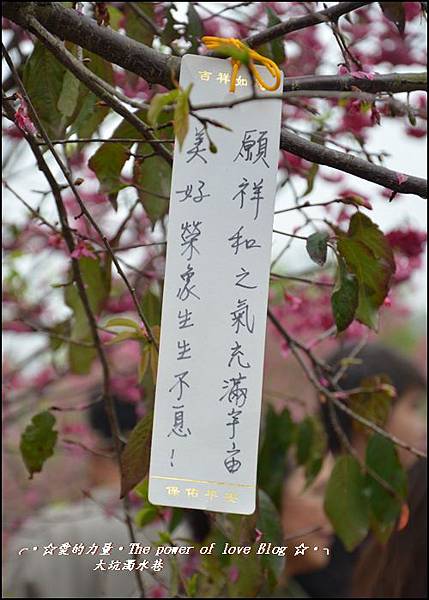 吉祥如意
願祥和之氣充滿宇宙
美好榮象生生不息！
保佑平安
╭‧☆愛的力量‧The power of love Blog ☆‧╮
大坑濁水巷